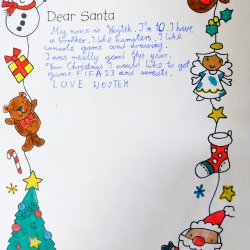 Dear Santa
My name is Wojtek. I'm 10. I have
a brother. I like hamsters. I like
console game and drawing.
I was really good this year.
For Christmas I would like to get
game FIFA 23 and sweets.
LOVE WOJTEK